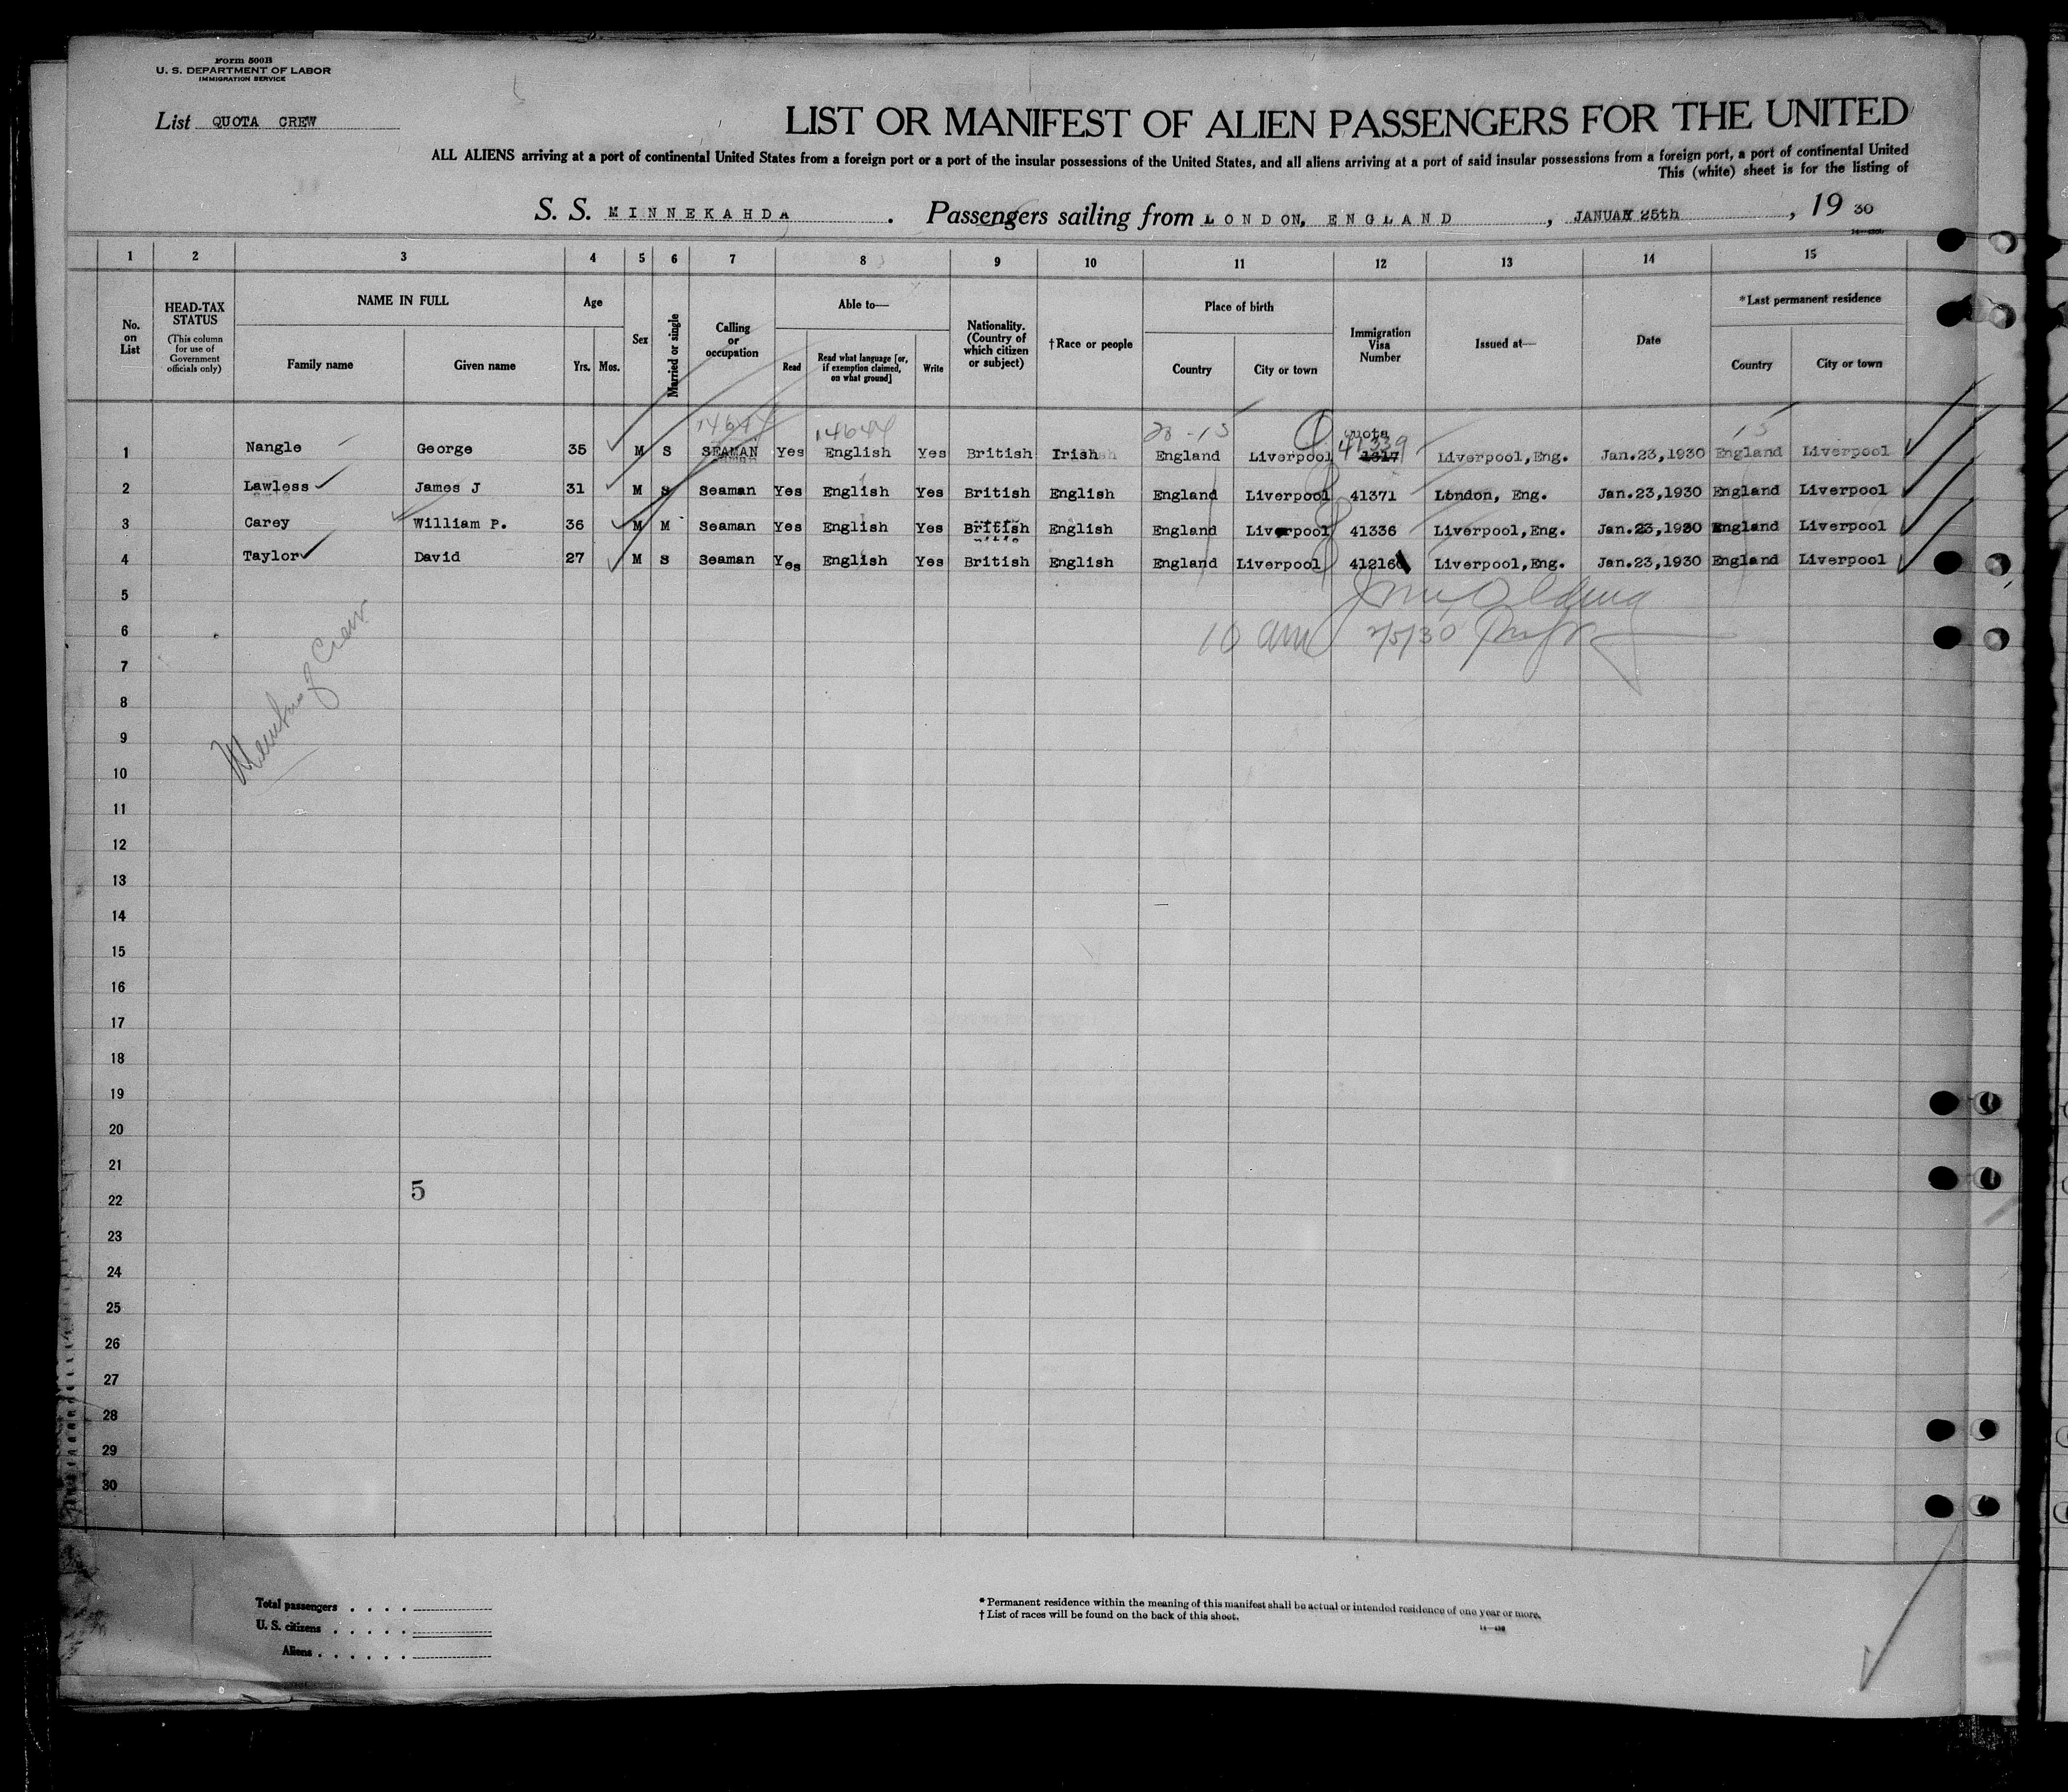 Form 500B
U. S. DEPARTMENT OF LABOR
IMMIGRATION SERVICE
List QUOTA CREW
LIST OR MANIFEST OF ALIEN PASSENGERS FOR THE UNITED
ALL ALIENS arriving at a port of continental United States from a foreign port or a port of the insular possessions of the United States, and all aliens arriving at a port of said insular possessions from a foreign port, a port of continental United
This (white) sheet is for the listing of
S. S. MINNEKAHDA . Passengers sailing from LONDON, ENGLAND , JANUAY 25th , 19 30
1 2 3 4 5 6 7 8 9 10 11 12 13 14 15
No. on List
HEAD-TAX STATUS (This column for use of Government officials only)
NAME IN FULL Family name Given name
Age Yrs. Mos.
Sex
Married or single
Calling or occupation
Able to— Read Read what language [or, if exemption claimed, on what ground] Write
Nationality. (Country of which citizen or subject)
†Race or people
Place of birth Country City or town
Immigration Visa Number
Issued at—
Date
*Last permanent residence Country City or town
14644 14644 28-15 quota 41339 15
1 Nangle George 35 M S SEAMAN Yes English Yes British Irish England Liverpool 1317 Liverpool,Eng. Jan.23,1930 England Liverpool
2 Lawless James J 31 M S Seaman Yes English Yes British English England Liverpool 41371 London, Eng. Jan.23,1930 England Liverpool
3 Carey William P. 36 M M Seaman Yes English Yes British English England Liverpool 41336 Liverpool,Eng. Jan.23,1930 England Liverpool
4 Taylor David 27 M S Seaman Yes English Yes British English England Liverpool 41216 Liverpool,Eng. Jan.23,1930 England Liverpool
5
6 10 am 2/5/30
Members of Crew
7
8
9
10
11
12
13
14
15
16
17
18
19
20
21
22 5
23
24
25
26
27
28
29
30
Total passengers . . . .
U. S. citizens . . . . .
Aliens . . . . . .
* Permanent residence within the meaning of this manifest shall be actual or intended residence of one year or more.
† List of races will be found on the back of this sheet.